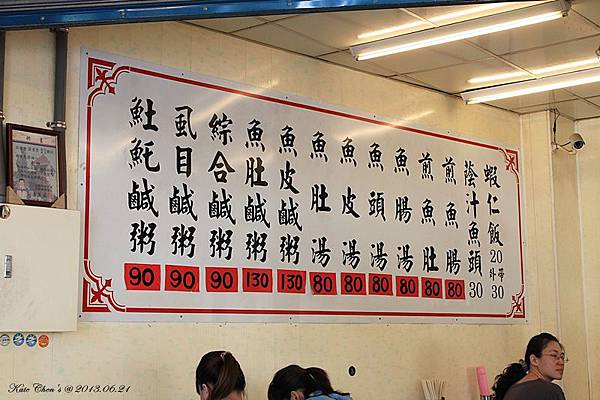 魠魠鹹粥 90
虱目鹹粥 90
綜合鹹粥 90
魚肚鹹粥 130
魚皮鹹粥 130
魚肚湯 80
魚皮湯 80
魚頭湯 80
魚腸湯 80
煎魚肚 80
煎魚腸 80
蔭汁魚頭 30
蝦仁飯 20
外帶 30
Kate Chen's @ 2013.06.21